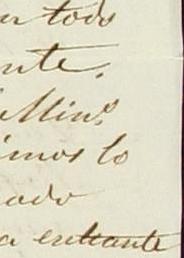 todo
nte.
Minº
imos lo
ado
a entrante